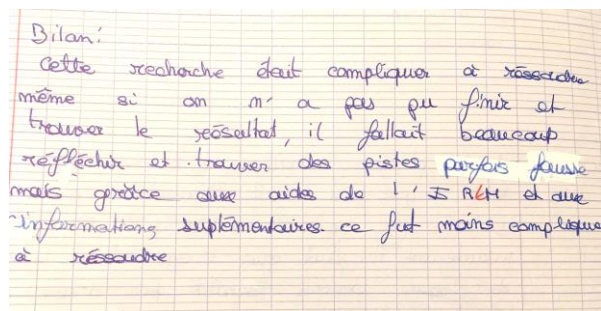 Bilan:
Cette recherche était compliquer à réssoudre
même si on n'a pas pu finir et
trouver le réosultat, il fallait beaucoup
réfléchir et trouver des pistes parfois fausse
mais grâce aux aides de l'IREM et aux
informations suplémentaires ce fut moins complique
à réssoudre